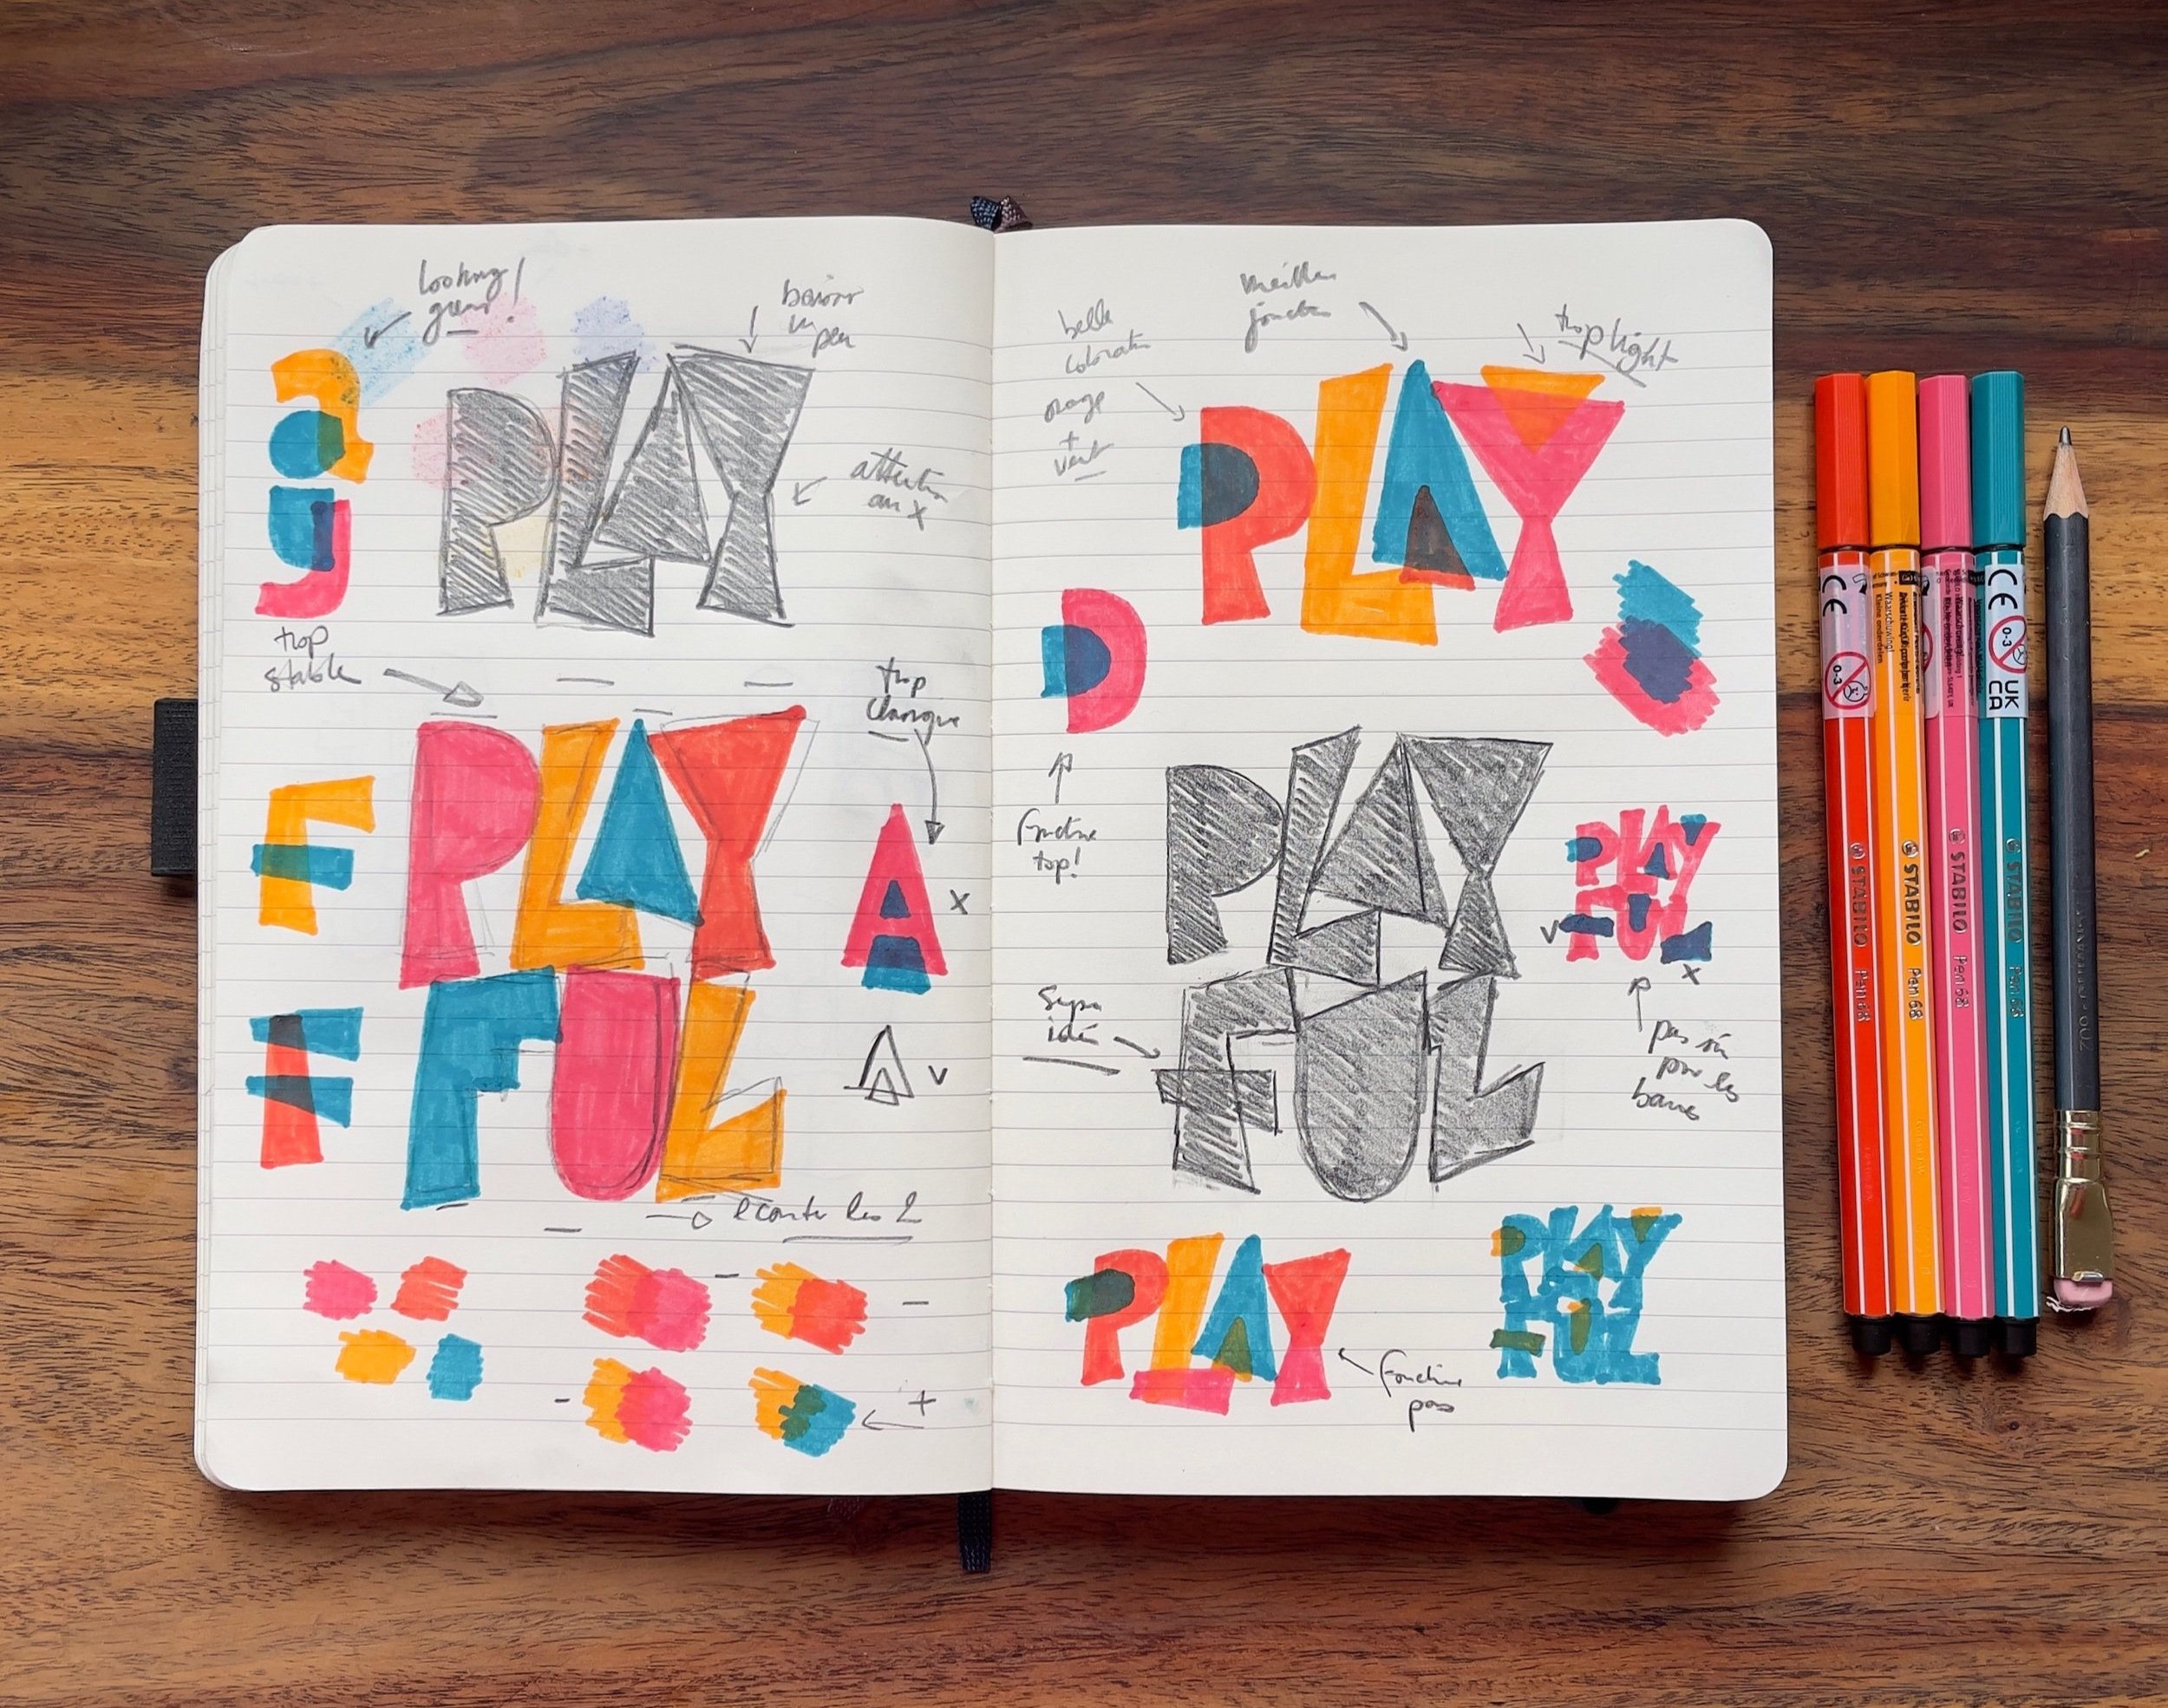 looking
great!
baisser
un
peu
attention
au x
PLAY
trop
stable
trop
classique
PLAY
FUL
F
F
A
x
A
v
écarter les 2
+
belle
coloration
orange
+
vert
meilleure
jonction
trop light
PLAY
D
fonctionne
top!
PLAY
FUL
super
idée
PLAY
FUL
v
x
pas sûr
pour les
barres
PLAY
fonctionne
pas
PLAY
FUL
CE
0-3
CE
0-3
UK
CA
STABILO
Pen 68
STABILO
Pen 68
STABILO
Pen 68
STABILO
Pen 68